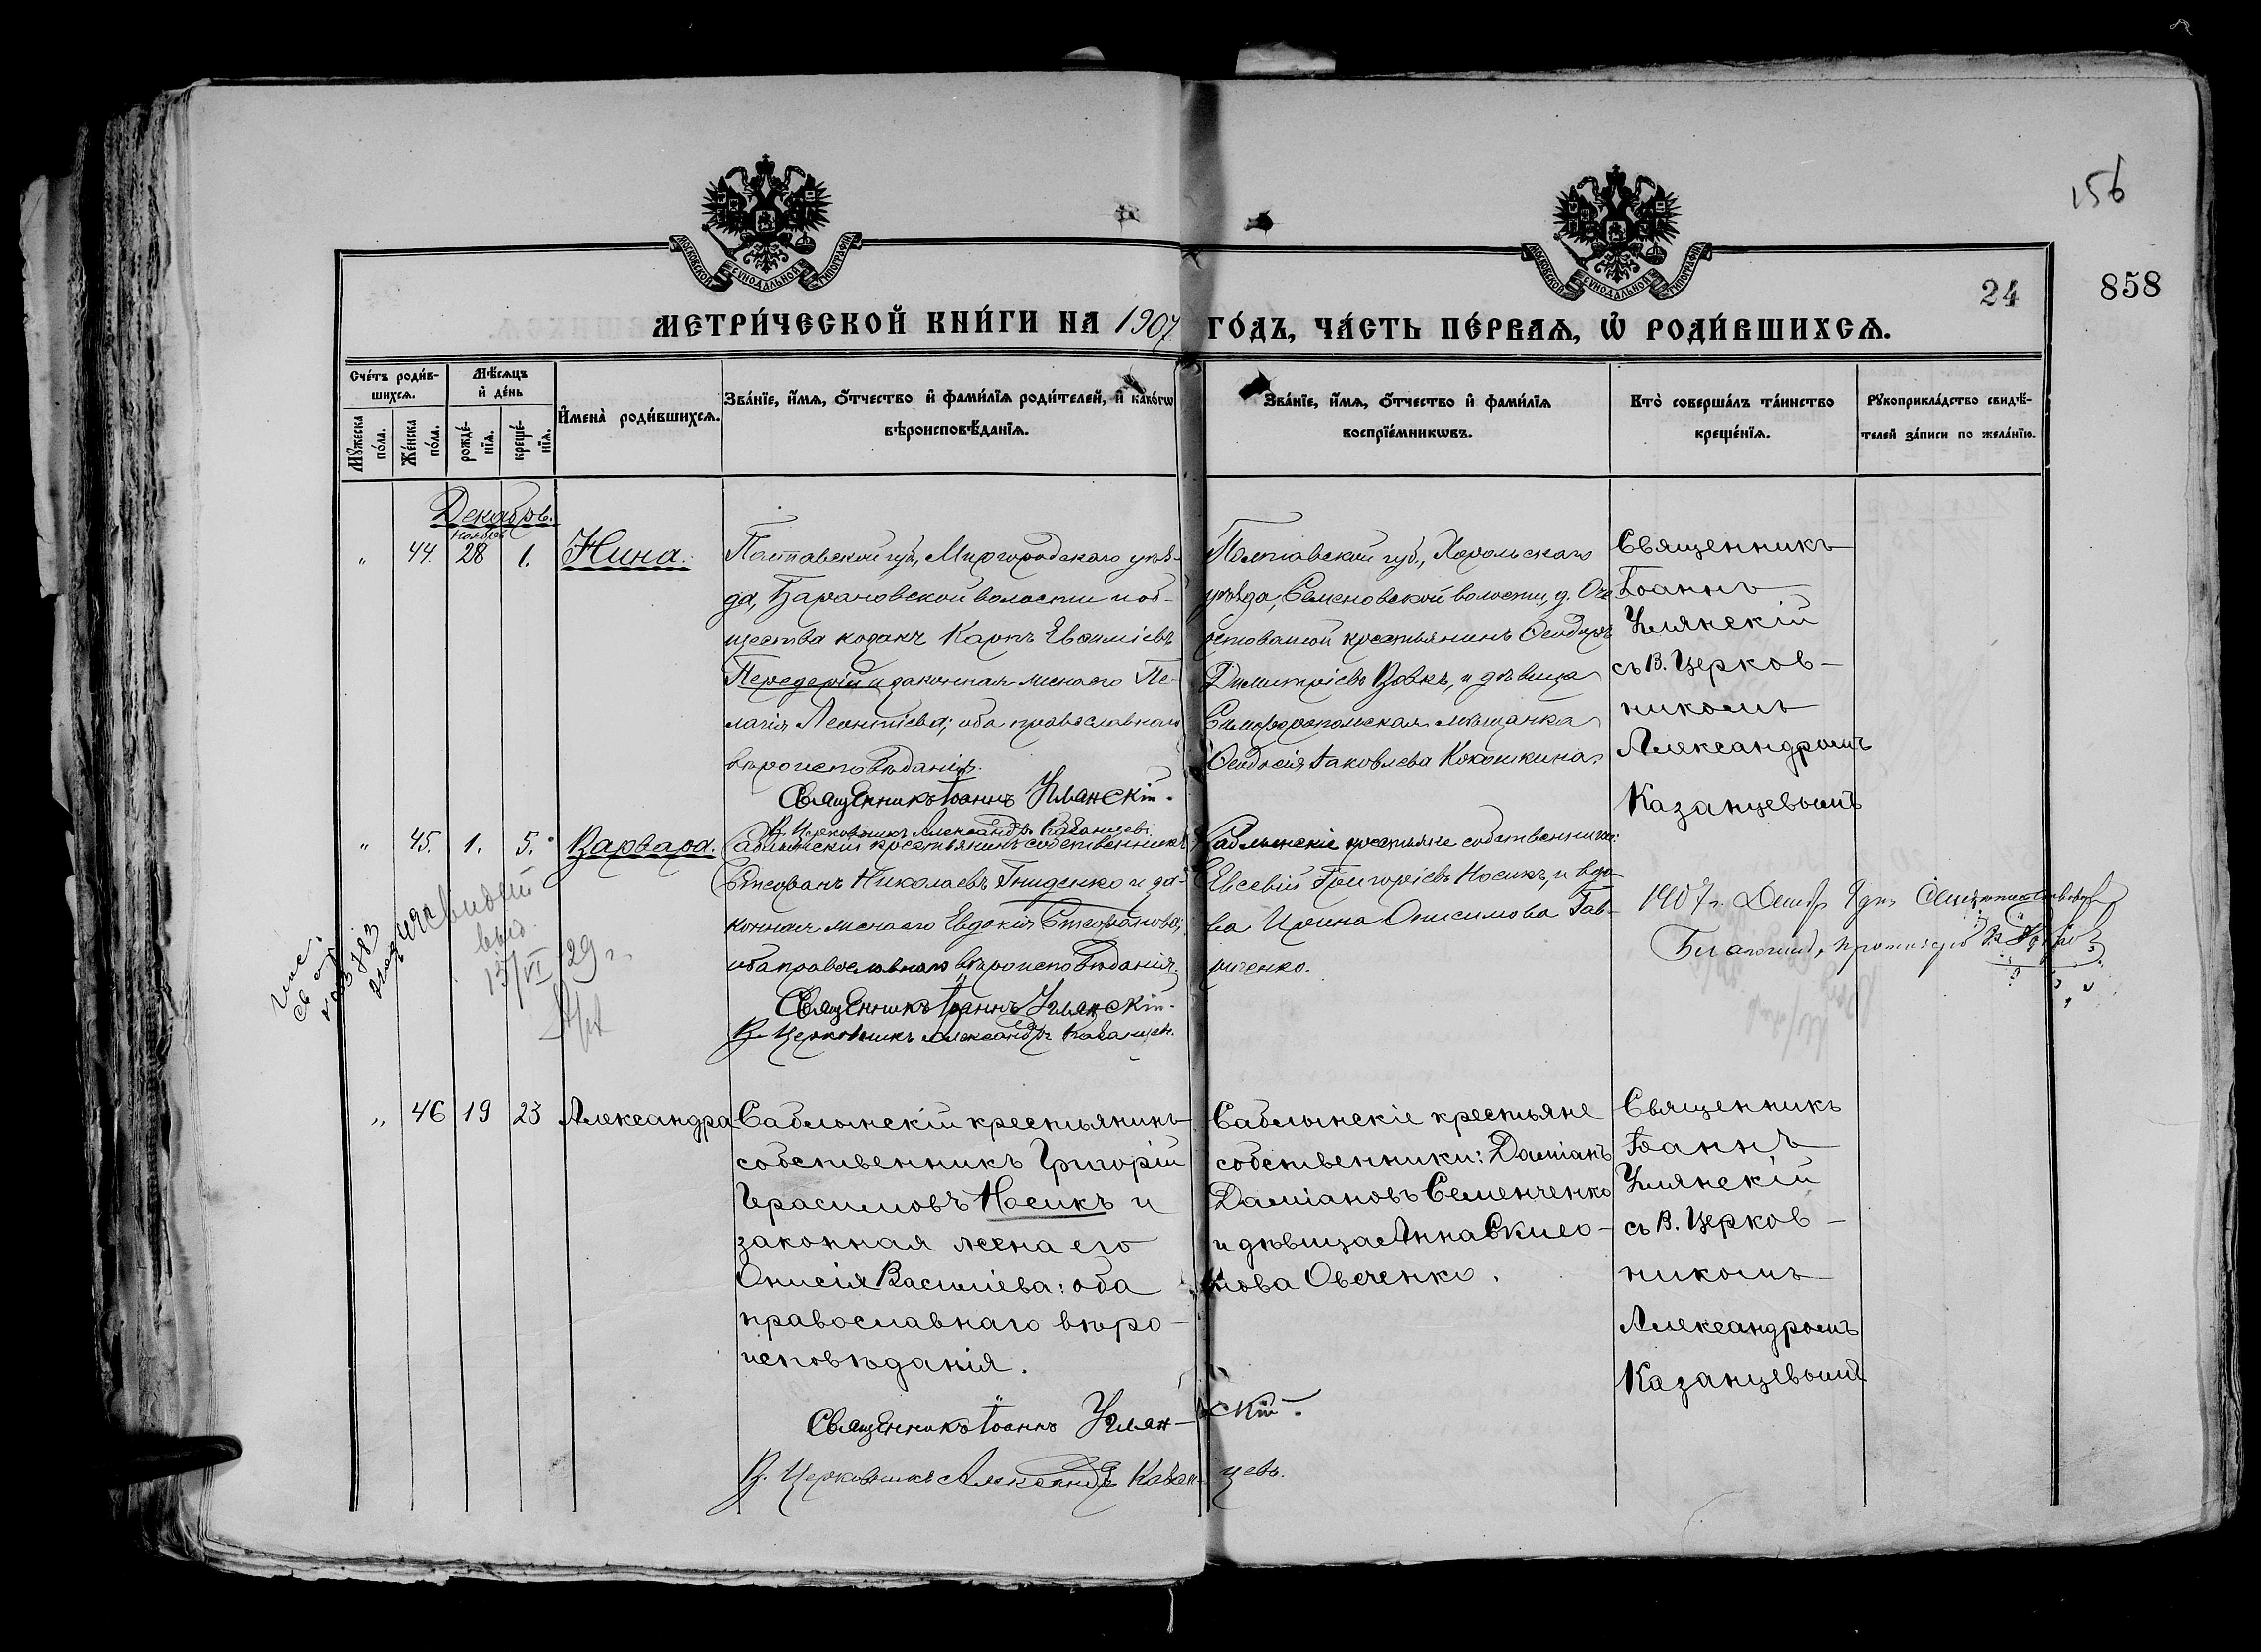 156
24
858
МОСКОВСКОЙ СѴНОДАЛЬНОЙ ТИПОГРАФІИ
МОСКОВСКОЙ СѴНОДАЛЬНОЙ ТИПОГРАФІИ
МЕТРИ́ЧЕСКОЙ КНИ́ГИ НА 1907 ГО́ДЪ, ЧА́СТЬ ПЕ́РВАѦ, Ѡ РОДИ́ВШИХСѦ.
Сче́тъ роди́в-
шихсѧ.
Мѣ́сѧцъ
и҆ де́нь
Мꙋжеска
по́ла.
Же́нска
по́ла.
рожде́-
нїѧ.
креще́-
нїѧ.
И҆мена̀ роди́вшихсѧ.
Зва́нїе, и҆́мѧ, ѻ҆́тчество и҆ фами́лїѧ роди́телей, и҆ како́гѡ
вѣроисповѣ́данїѧ.
Зва́нїе, и҆́мѧ, ѻ҆́тчество и҆ фами́лїѧ
воспрїе́мникѡвъ.
Кто̀ соверша́лъ та́инство
креще́нїѧ.
Рꙋкоприкла́дство свидѣ́-
телей за́писи по жела́нїю.
Декабрь.
Ноябрь
" 44. 28 1. Нина.
Полтавской губ., Миргородского уѣз-
да, Барановской волости и об-
щества козакъ Карпъ Евѳиміевъ
Передерій и законная жена его Пе-
лагія Леонтіева; оба православнаго
вѣроисповѣданія.
Священникъ Іоаннъ Улянскій.
В. Церковникъ Александръ Казанцевъ.
Полтавской губ., Хорольскаго
уѣзда, Семеновской волости, д.
крестьянинъ Ѳеодоръ
Димитріевъ Вовкъ, и дѣвица
Симферопольская мѣщанка
Ѳеодосія Іаковлева Кокошкина
Священникъ
Іоаннъ
Улянскій
съ В. Церков-
никомъ
Александромъ
Казанцевымъ
" 45. 1. 5. Варвара.
Саблынскій крестьянинъ собственникъ
Стефанъ Николаевъ Гниденко и за-
конная жена его Евдокія Стефанова;
оба православнаго вѣроисповѣданія.
Священникъ Іоаннъ Улянскій.
В. Церковникъ Александръ Казанцев.
Саблынскіе крестьяне собственники:
Евсевій Григорієвъ Носикъ, и вдо-
ва Ирина Онисимова Гав-
риченко.
1907 г. Декабр 9 дня
13/VI 29 г.
" 46 19 23 Александра
Саблынскій крестьянинъ
собственникъ Григорій
Герасимовъ Носикъ и
законная жена его
Онисія Василіева: оба
православнаго вѣро-
исповѣданія.
Священникъ Іоаннъ Улян-скій.
В. Церковникъ Александръ Казан-цевъ.
Саблынскіе крестьяне
собственники: Даміанъ
Даміановъ Семенченко
и дѣвица Анна
Овченко.
Священникъ
Іоаннъ
Улянскій
съ В. Церков-
никомъ
Александромъ
Казанцевымъ